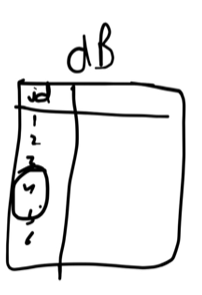 dB
id
1
2
3
4
5
6